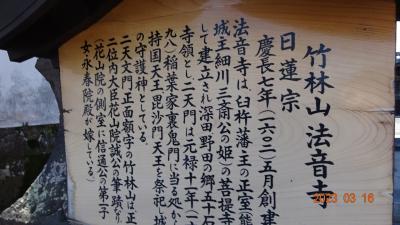 竹林山 法音寺
日蓮宗
慶長七年(一六〇二)五月創建
法音寺は、臼杵藩々主の正室(熊
城主細川三斎公の姫)の菩提寺
して建立され深田野田の郷五十石
寺領とし、二天門は元禄十一年(一六
九八)稲葉家裏鬼門に当る処から
持国天王毘沙門天王を祭祀し城
の守護神としている。
二天文門正面額字の竹林山は正
二位内大臣花山院誠公の筆跡なり
(花山院の側室に信通公の第一子
女・永春院殿が嫁している)
2023 03 16